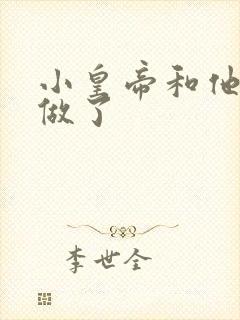 小皇帝和他
做了
李世全